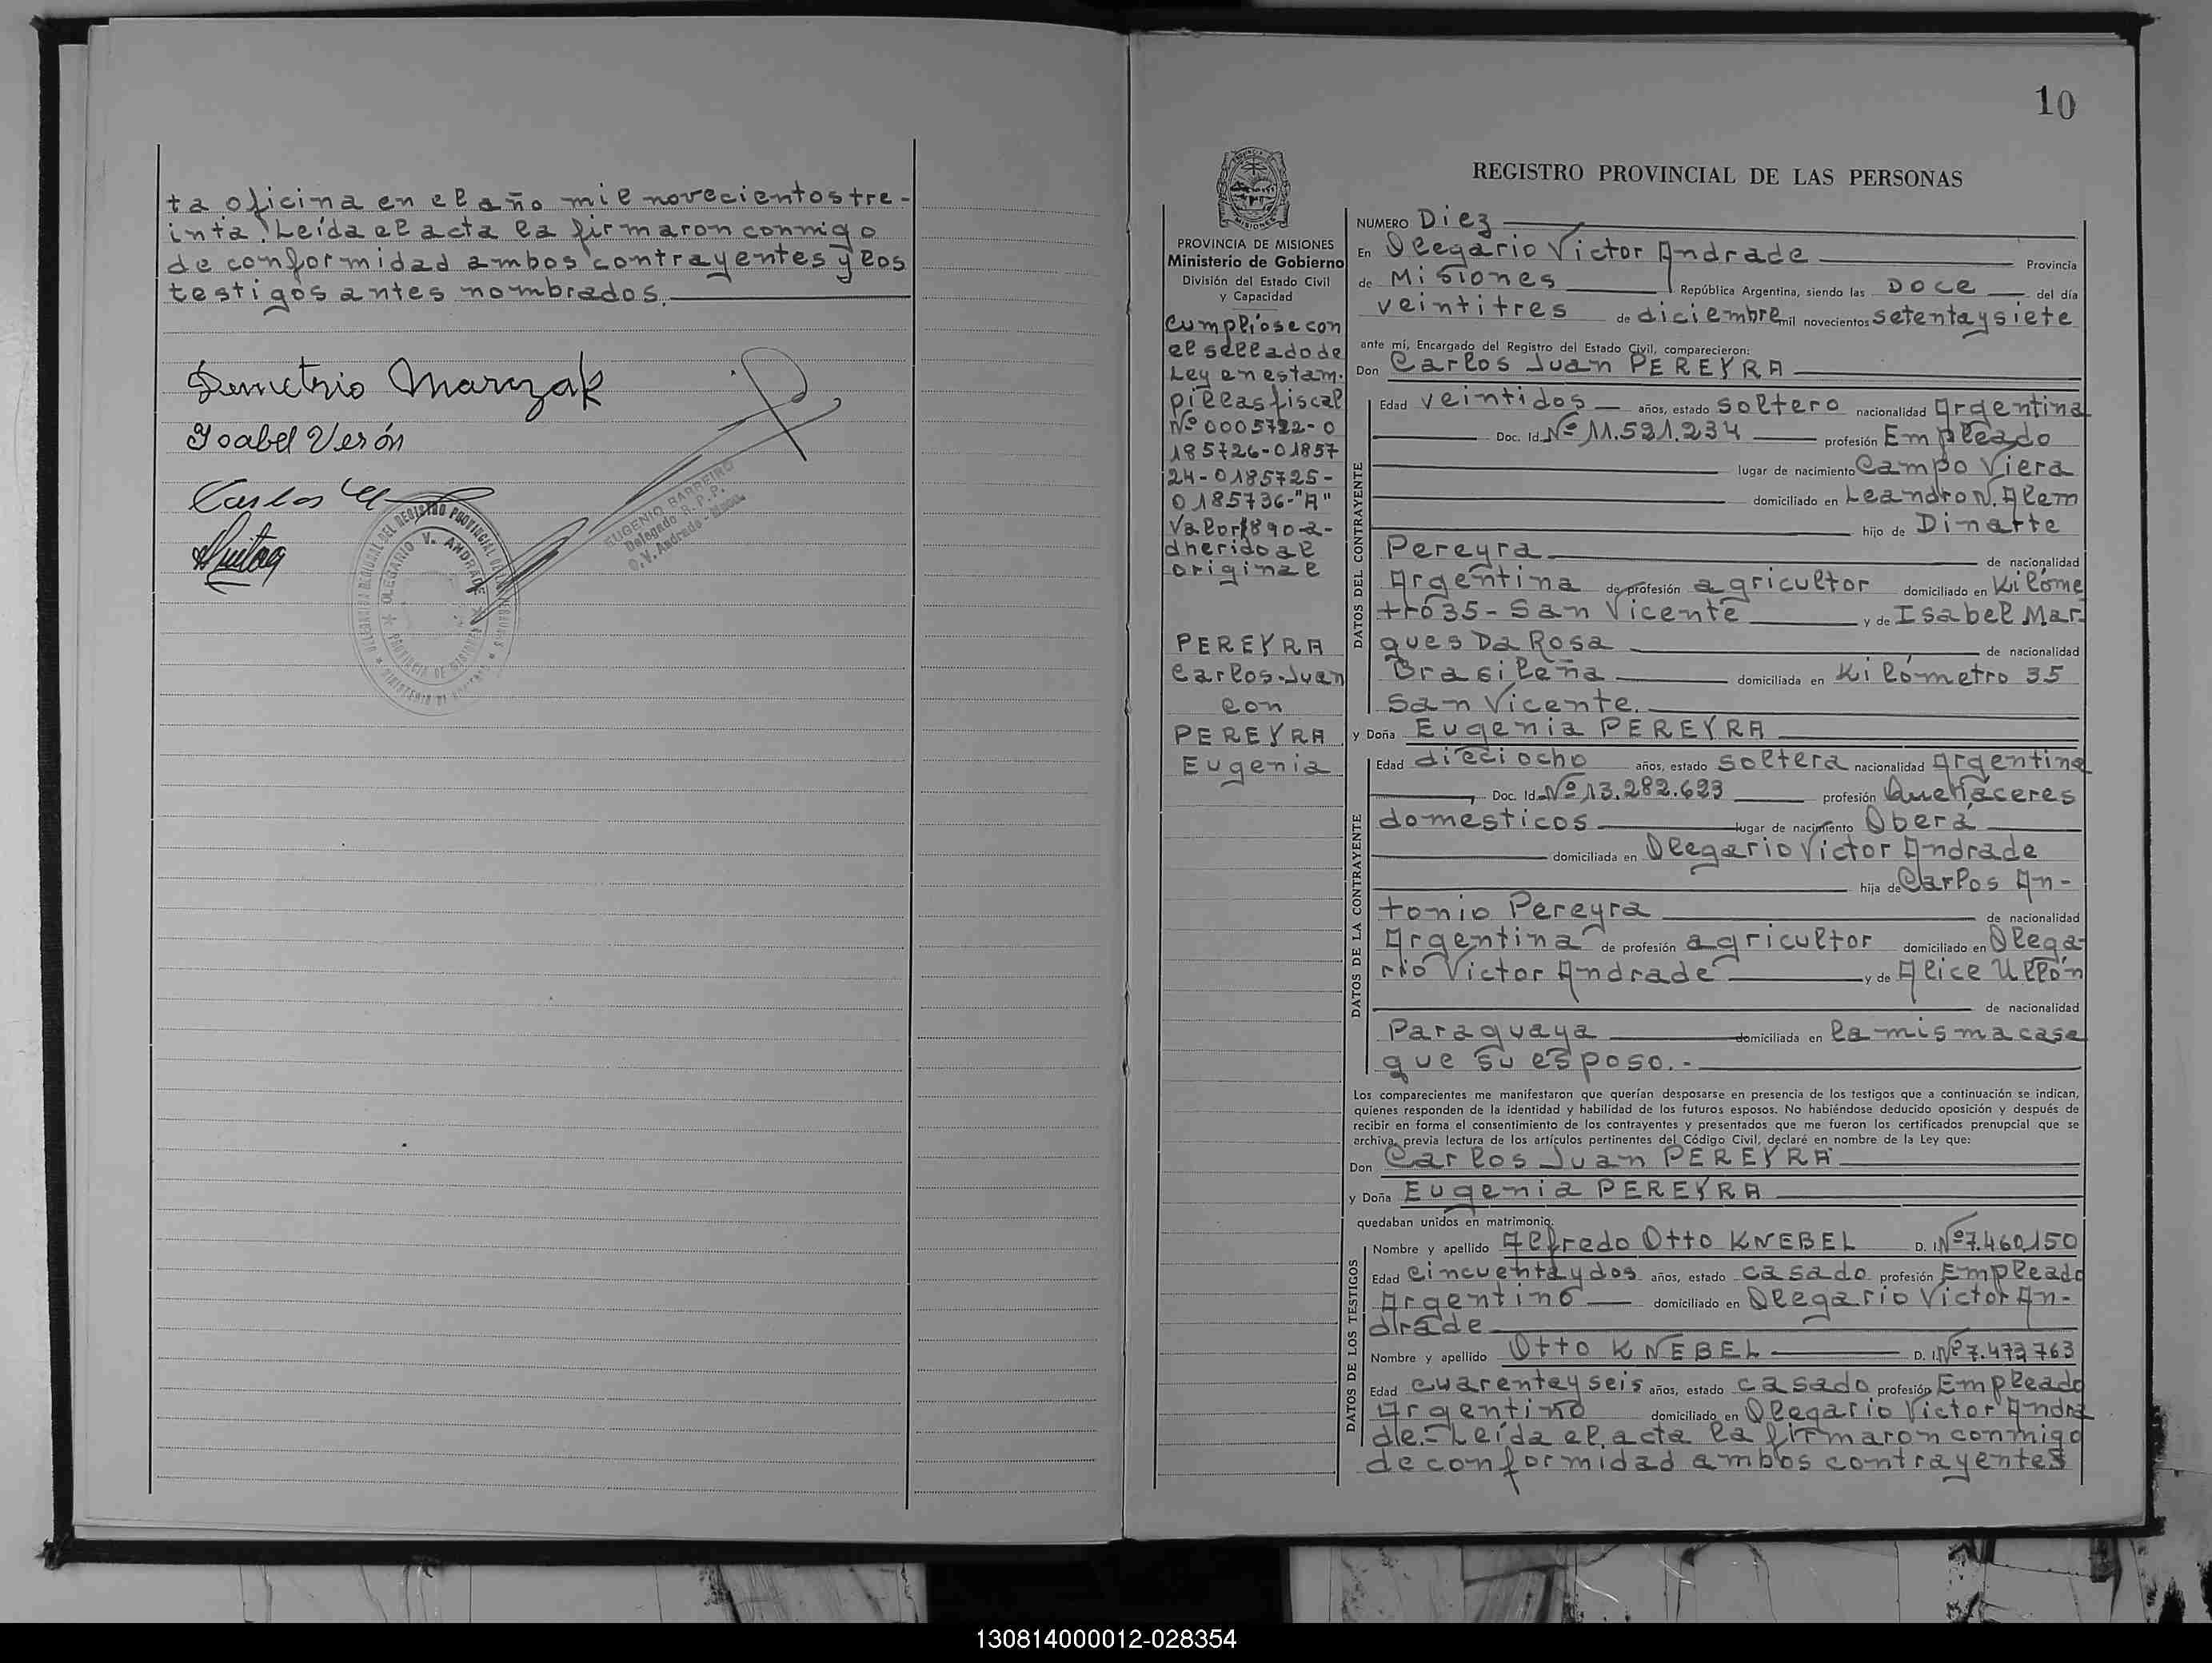 ta oficina en el año mil novecientos tre-
inta. Leída el acta la firmaron conmigo
de conformidad ambos contrayentes y los
testigos antes nombrados.
Demetrio Marczak
Isabel Verón
Carlos
EUGENIO BARREIRO
Delegado R.P.P.
O. V. Andrade - Mnes.
DELEGACION REGIONAL DEL REGISTRO PROVINCIAL DE LAS PERSONAS
OLEGARIO V. ANDRADE
PROVINCIA DE MISIONES
10
REGISTRO PROVINCIAL DE LAS PERSONAS
MISIONES
PROVINCIA DE MISIONES
Ministerio de Gobierno
División del Estado Civil
y Capacidad
Cumpliose con
el sellado de
Ley en estam-
pillas fiscal
Nº 0005722-0
185726-01857
24-0185725-
0185736-"A"
Valor $890-a-
dherido al
original
PEREYRA
Carlos Juan
con
PEREYRA
Eugenia
NUMERO Diez
En Olegario Victor Andrade Provincia
de Misiones República Argentina, siendo las DOCE del día
veintitres de diciembre mil novecientos setenta y siete
ante mí, Encargado del Registro del Estado Civil, comparecieron:
Don Carlos Juan PEREYRA
DATOS DEL CONTRAYENTE
Edad veintidos años, estado soltero nacionalidad Argentina
Doc. Id. Nº 11.521.234 profesión Empleado
lugar de nacimiento Campo Viera
domiciliado en Leandro N. Alem
hijo de Dinarte
Pereyra de nacionalidad
Argentina de profesión agricultor domiciliado en Kilóme
tro 35 - San Vicente y de Isabel Mar-
ques Da Rosa de nacionalidad
Brasileña domiciliada en Kilómetro 35
San Vicente.
y Doña Eugenia PEREYRA
DATOS DE LA CONTRAYENTE
Edad dieciocho años, estado soltera nacionalidad Argentina
Doc. Id. Nº 13.282.623 profesión Quehaceres
domesticos lugar de nacimiento Oberá
domiciliada en Olegario Victor Andrade
hija de Carlos An-
tonio Pereyra de nacionalidad
Argentina de profesión agricultor domiciliado en Olega-
rio Victor Andrade y de Alice Ullón
de nacionalidad
Paraguaya domiciliada en la misma casa
que su esposo.-
Los comparecientes me manifestaron que querían desposarse en presencia de los testigos que a continuación se indican,
quienes responden de la identidad y habilidad de los futuros esposos. No habiéndose deducido oposición y después de
recibir en forma el consentimiento de los contrayentes y presentados que me fueron los certificados prenupcial que se
archiva, previa lectura de los artículos pertinentes del Código Civil, declaré en nombre de la Ley que:
Don Carlos Juan PEREYRA
y Doña Eugenia PEREYRA
quedaban unidos en matrimonio.
DATOS DE LOS TESTIGOS
Nombre y apellido Alfredo Otto KNEBEL D. I. Nº 7.460.150
Edad cincuenta y dos años, estado casado profesión Empleado
Argentino domiciliado en Olegario Victor An-
drade
Nombre y apellido Otto KNEBEL D. I. Nº 7.473763
Edad cuarenta y seis años, estado casado profesión Empleado
Argentino domiciliado en Olegario Victor Andra
de.- Leída el acta la firmaron conmigo
de conformidad ambos contrayentes
130814000012-028354